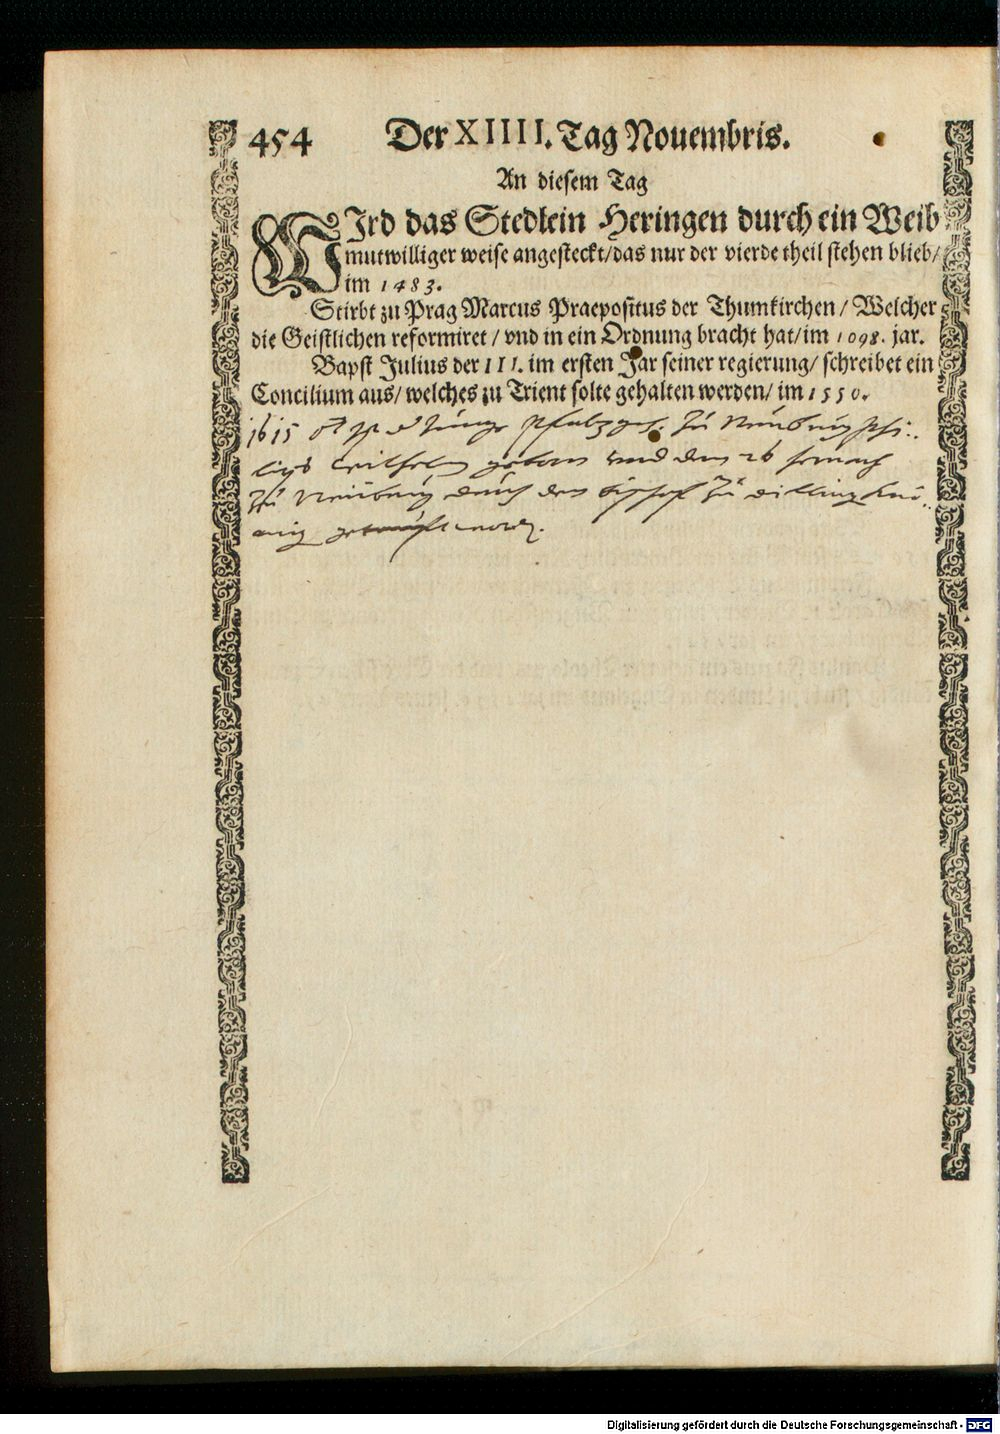 454 Der XIIII. Tag Nouembris.
An diesem Tag
WIrd das Stedlein Heringen durch ein Weib
mutwilliger weise angesteckt/das nur der vierde theil stehen blieb/
im 1483.
Stirbt zu Prag Marcus Praepositus der Thumkirchen / Welcher
die Geistlichen reformiret / vnd in ein Ordnung bracht hat/im 1098. jar.
Bapst Julius der III. im ersten Jar seiner regierung/ schreibet ein
Concilium aus/ welches zu Trient solte gehalten werden/ im 1550.
1615 Junge Pfalzgf. zu Neuburg Phi-
lips Wilhelm geborn und den 26 hernach
zu Neuburg durch den bischof zu dilling
getaufft worden.
Digitalisierung gefördert durch die Deutsche Forschungsgemeinschaft - DFG